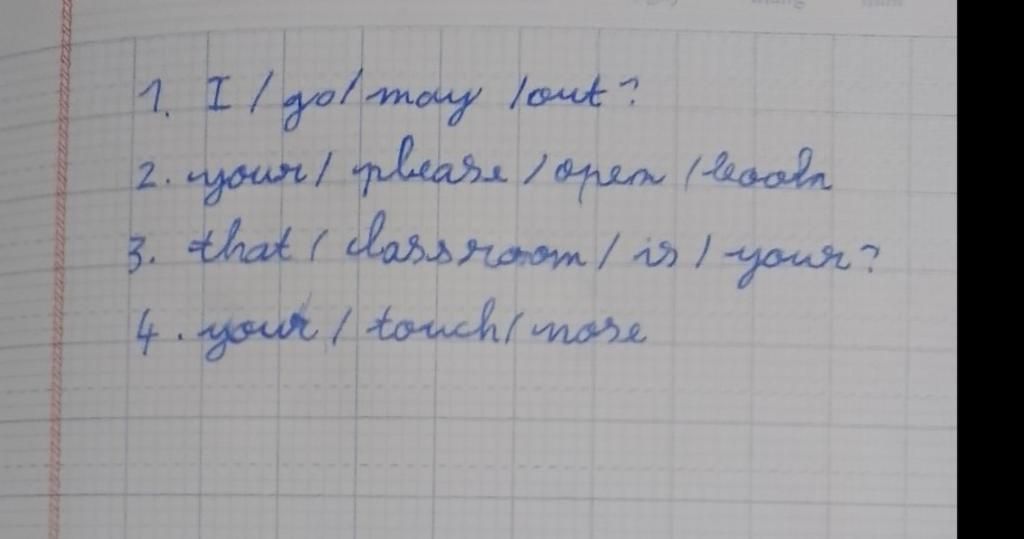 1. I / go / may / out?
2. your / please / open / book
3. that / classroom / is / your?
4. your / touch / nose